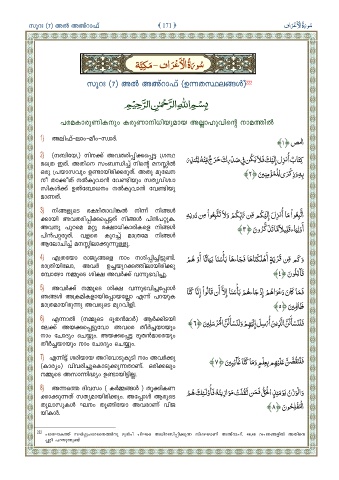 സൂറഃ (7) അൽ അഅ്റാഫ് ( 171 ) سورة الأعراف
سُورَةُ الْأَعْرَافِ - مَكِّيَّة
സൂറഃ (7) അൽ അഅ്റാഫ് (ഉന്നതസ്ഥലങ്ങൾ)
بِسْمِ اللَّهِ الرَّحْمَٰنِ الرَّحِيمِ
പരമകാരുണികനും കരുണാനിധിയുമായ അല്ലാഹുവിന്റെ നാമത്തിൽ
1) അലിഫ്-ലാം-മീം-സ്വാദ്.
المص ﴿١﴾
2) (നബിയേ,) നിനക്ക് അവതരിപ്പിക്കപ്പെട്ട ഗ്രന്ഥ
മത്രെ ഇത്. അതിനെ സംബന്ധിച്ച് നിന്റെ മനസ്സിൽ
ഒരു പ്രയാസവും ഉണ്ടായിരിക്കരുത്. അതു മുഖേന
നീ താക്കീത് നൽകുവാൻ വേണ്ടിയും സത്യവിശ്വാ
സികൾക്ക് ഉൽബോധനം നൽകുവാൻ വേണ്ടിയു
മാണത്.
كِتَابٌ أُنزِلَ إِلَيْكَ فَلَا يَكُن فِي صَدْرِكَ حَرَجٌ مِّنْهُ لِتُنذِرَ
بِهِ وَذِكْرَىٰ لِلْمُؤْمِنِينَ ﴿٢﴾
3) നിങ്ങളുടെ രക്ഷിതാവിങ്കൽ നിന്ന് നിങ്ങൾ
ക്കായി അവതരിപ്പിക്കപ്പെട്ടത് നിങ്ങൾ പിൻപറ്റുക.
അവനു പുറമെ മറ്റു രക്ഷാധികാരികളെ നിങ്ങൾ
പിൻപറ്റരുത്. വളരെ കുറച്ച് മാത്രമേ നിങ്ങൾ
ആലോചിച്ച് മനസ്സിലാക്കുന്നുള്ളൂ.
اتَّبِعُوا مَا أُنزِلَ إِلَيْكُم مِّن رَّبِّكُمْ وَلَا تَتَّبِعُوا مِن دُونِهِ
أَوْلِيَاءَ ۗ قَلِيلًا مَّا تَذَكَّرُونَ ﴿٣﴾
4) എത്രയോ രാജ്യങ്ങളെ നാം നശിപ്പിച്ചിട്ടുണ്ട്.
രാത്രിയിലോ, അവർ ഉച്ചയുറക്കത്തിലായിരിക്കു
മ്പോഴോ നമ്മുടെ ശിക്ഷ അവർക്ക് വന്നുഭവിച്ചു.
وَكَم مِّن قَرْيَةٍ أَهْلَكْنَاهَا فَجَاءَهَا بَأْسُنَا بَيَاتًا أَوْ هُمْ
قَائِلُونَ ﴿٤﴾
5) അവർക്ക് നമ്മുടെ ശിക്ഷ വന്നുഭവിച്ചപ്പോൾ
ഞങ്ങൾ അക്രമികളായിപ്പോയല്ലോ എന്ന് പറയുക
മാത്രമായിരുന്നു അവരുടെ മുറവിളി.
فَمَا كَانَ دَعْوَاهُمْ إِذْ جَاءَهُم بَأْسُنَا إِلَّا أَن قَالُوا إِنَّا كُنَّا
ظَالِمِينَ ﴿٥﴾
6) എന്നാൽ (നമ്മുടെ ദൂതൻമാർ) ആർക്കിടയി
ലേക്ക് അയക്കപ്പെട്ടുവോ അവരെ തീർച്ചയായും
നാം ചോദ്യം ചെയ്യും. അയക്കപ്പെട്ട ദൂതൻമാരെയും
തീർച്ചയായും നാം ചോദ്യം ചെയ്യും.
فَلَنَسْأَلَنَّ الَّذِينَ أُرْسِلَ إِلَيْهِمْ وَلَنَسْأَلَنَّ الْمُرْسَلِينَ ﴿٦﴾
7) എന്നിട്ട് ശരിയായ അറിവോടുകൂടി നാം അവർക്കു
(കാര്യം) വിവരിച്ചുകൊടുക്കുന്നതാണ്. ഒരിക്കലും
നമ്മുടെ അസാന്നിദ്ധ്യം ഉണ്ടായിട്ടില്ല.
فَلَنَقُصَّنَّ عَلَيْهِم بِعِلْمٍ ۖ وَمَا كُنَّا غَائِبِينَ ﴿٧﴾
8) അന്നത്തെ ദിവസം (കർമ്മങ്ങൾ) തൂക്കികണ
ക്കാക്കുന്നത് സത്യമായിരിക്കും. അപ്പോൾ ആരുടെ
തുലാസുകൾ ഘനം തൂങ്ങിയോ അവരാണ് വിജ
യികൾ.
وَالْوَزْنُ يَوْمَئِذٍ الْحَقُّ ۚ فَمَن ثَقُلَتْ مَوَازِينُهُ فَأُولَٰئِكَ هُمُ
الْمُفْلِحُونَ ﴿٨﴾